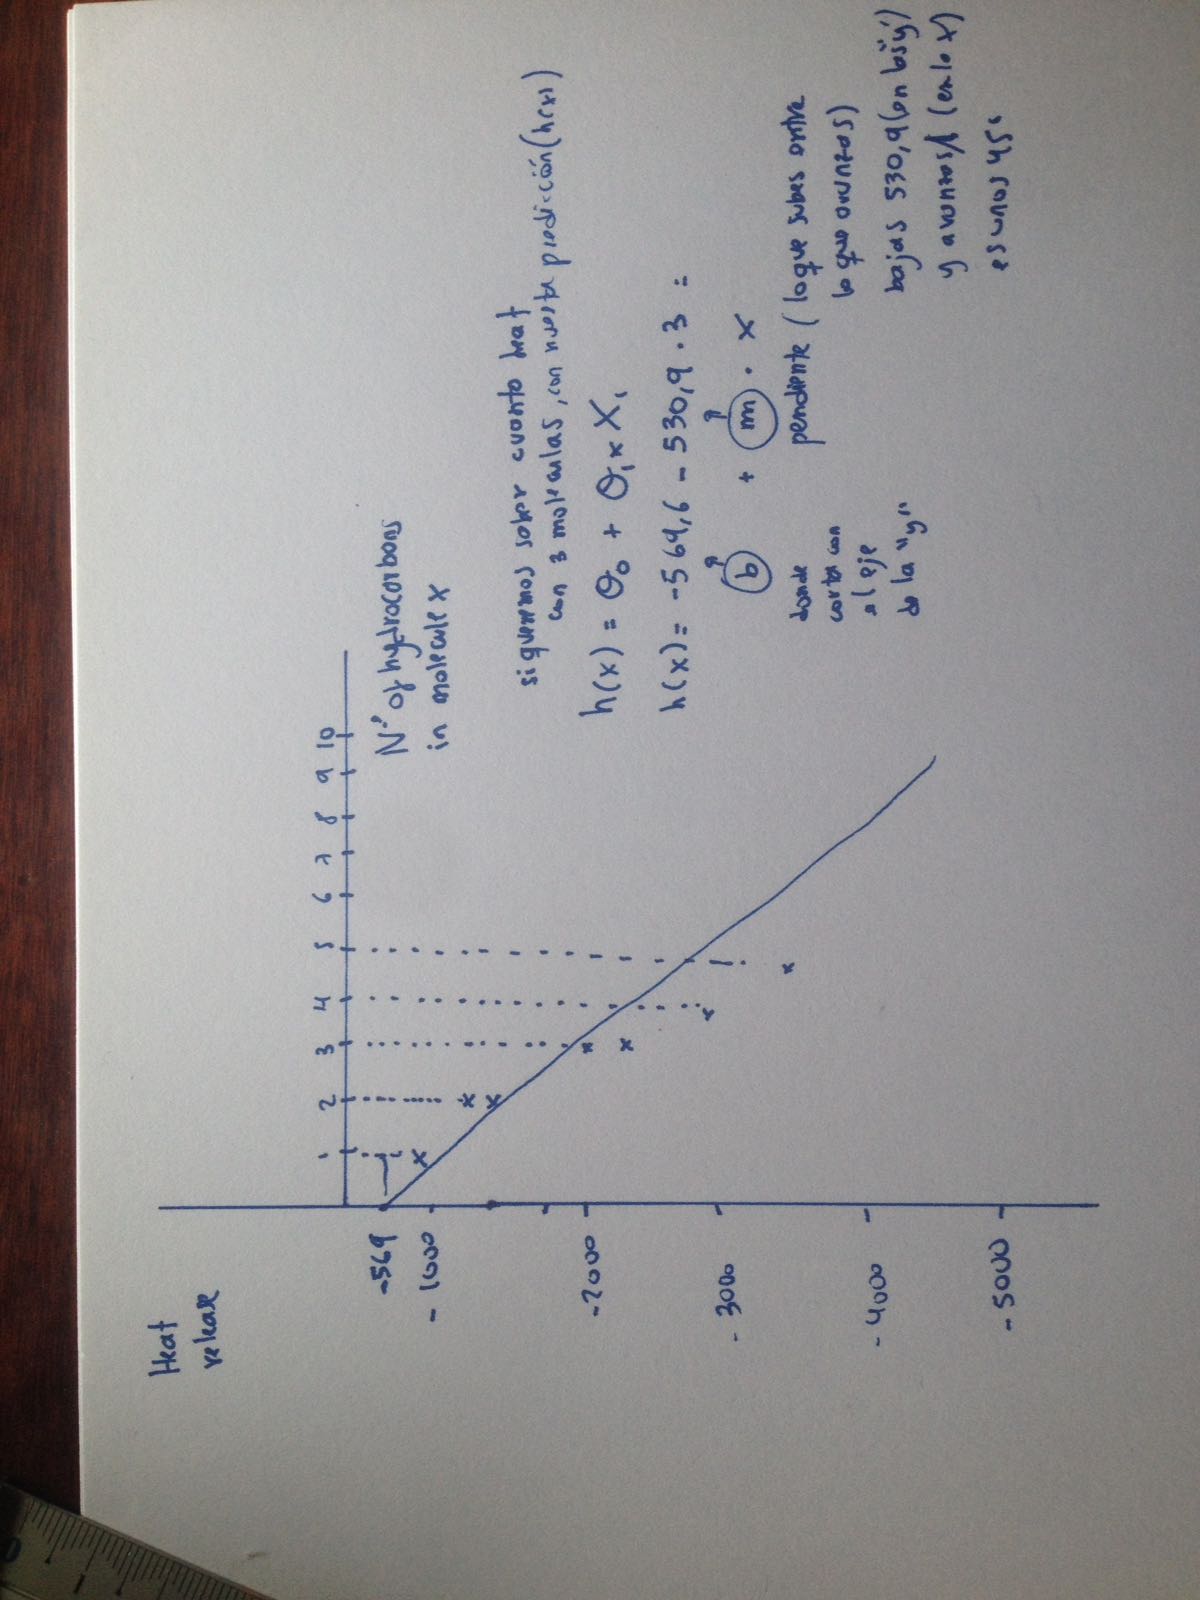 Heat
release
1 2 3 4 5 6 7 8 9 10
-569
- 1000
-2000
- 3000
- 4000
- 5000
Nº of hydrocarbons
in molecule x
si queremos saber cuanto heat
con 3 moleculas, con nuestra predicción (h(x))
h(x) = θ₀ + θ₁ x X₁
h(x) = -569,6 - 530,9 · 3 =
b + m · x
donde
corta con
el eje
de la "y"
pendiente ( lo que subes entre
lo que avanzas)
bajas 530,9 (en las "y")
y avanzas 1 (en la x)
es unos 45º